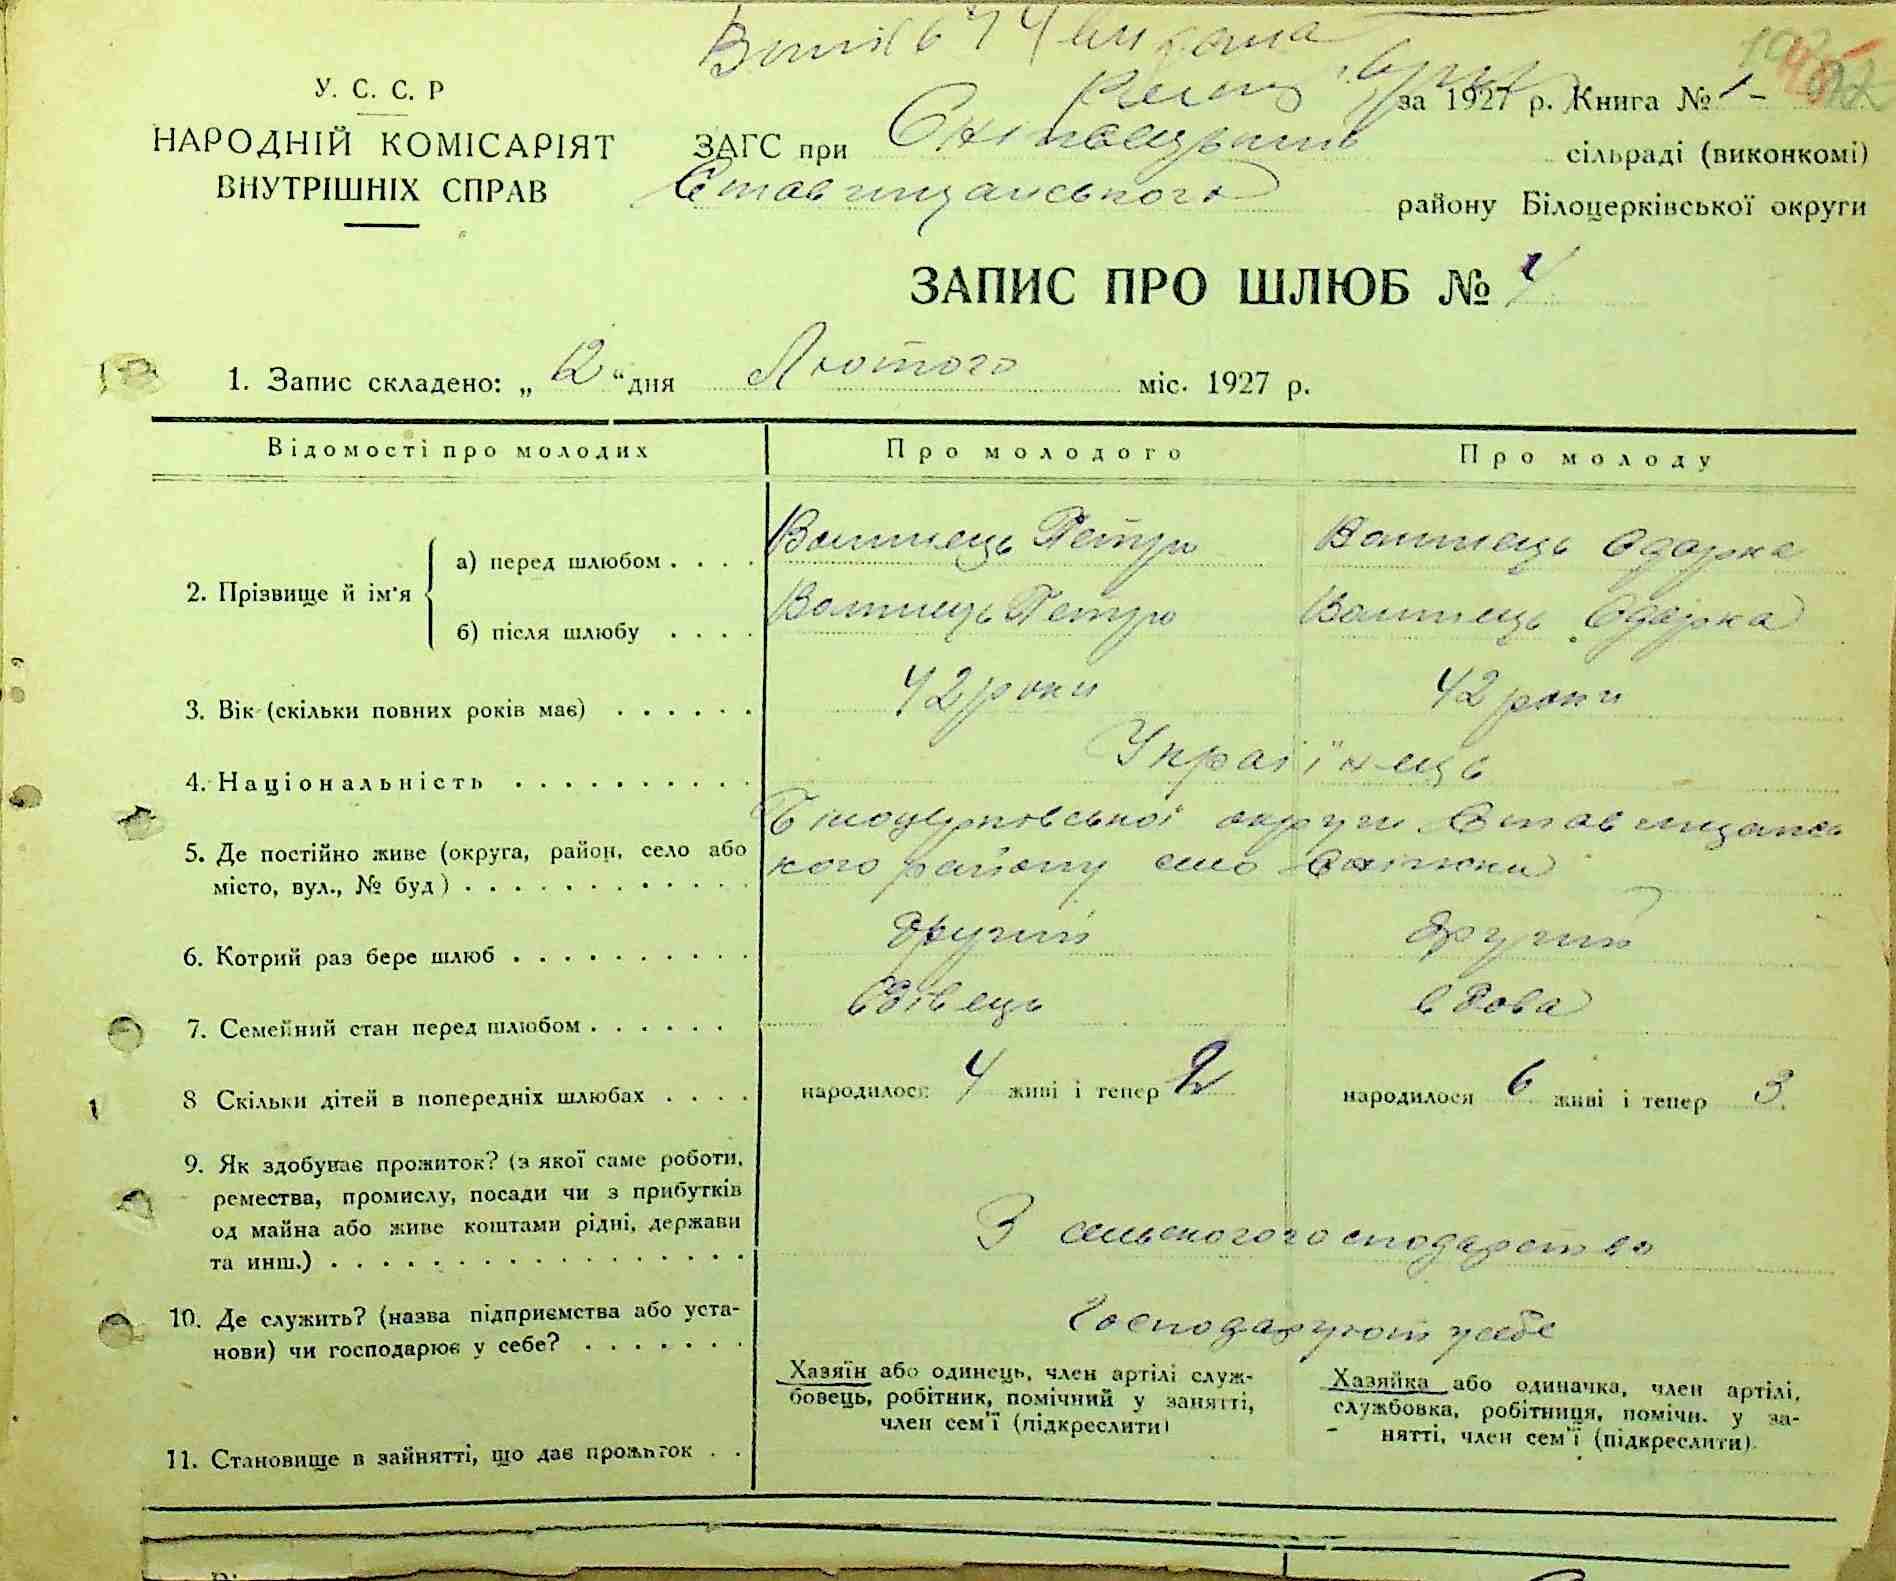 У. С. С. Р
НАРОДНІЙ КОМІСАРІЯТ
ВНУТРІШНІХ СПРАВ
за 1927 р. Книга № 1
ЗАГС при сільраді (виконкомі)
Ставищанського району Білоцерківської округи
ЗАПИС ПРО ШЛЮБ № 4
1. Запис складено: „ 12 “ дня Лютого міс. 1927 р.
Відомості про молодих Про молодого Про молоду
2. Прізвище й ім'я
а) перед шлюбом . . . . Петро Одарка
б) після шлюбу . . . . Петро Одарка
3. Вік (скільки повних років має) . . . . . . 42 роки 42 роки
4. Національність . . . . . . . . . . Українець
5. Де постійно живе (округа, район, село або Білоцерковської округи Ставищансь
місто, вул., № буд) . . . . . . . . . . . . кого району село Сніжки
6. Котрий раз бере шлюб . . . . . . . . . . другий другий
7. Семейний стан перед шлюбом . . . . . . вдівець вдова
8 Скільки дітей в попередніх шлюбах . . . . народилося 4 живі і тепер 2 народилося 6 живі і тепер 3
9. Як здобуває прожиток? (з якої саме роботи,
ремества, промислу, посади чи з прибутків
од майна або живе коштами рідні, держави
та инш.) . . . . . . . . . . . . . . . . . З сельского господарства
10. Де служить? (назва підприємства або уста-
нови) чи господарює у себе? . . . . . . . Господарують у себе
Хазяїн або одинець, член артілі служ-
бовець, робітник, помічний у занятті,
член сем'ї (підкреслити)
Хазяйка або одиначка, член артілі,
службовка, робітниця, помічн. у за-
нятті, член сем'ї (підкреслити).
11. Становище в зайнятті, що дає прожиток . .